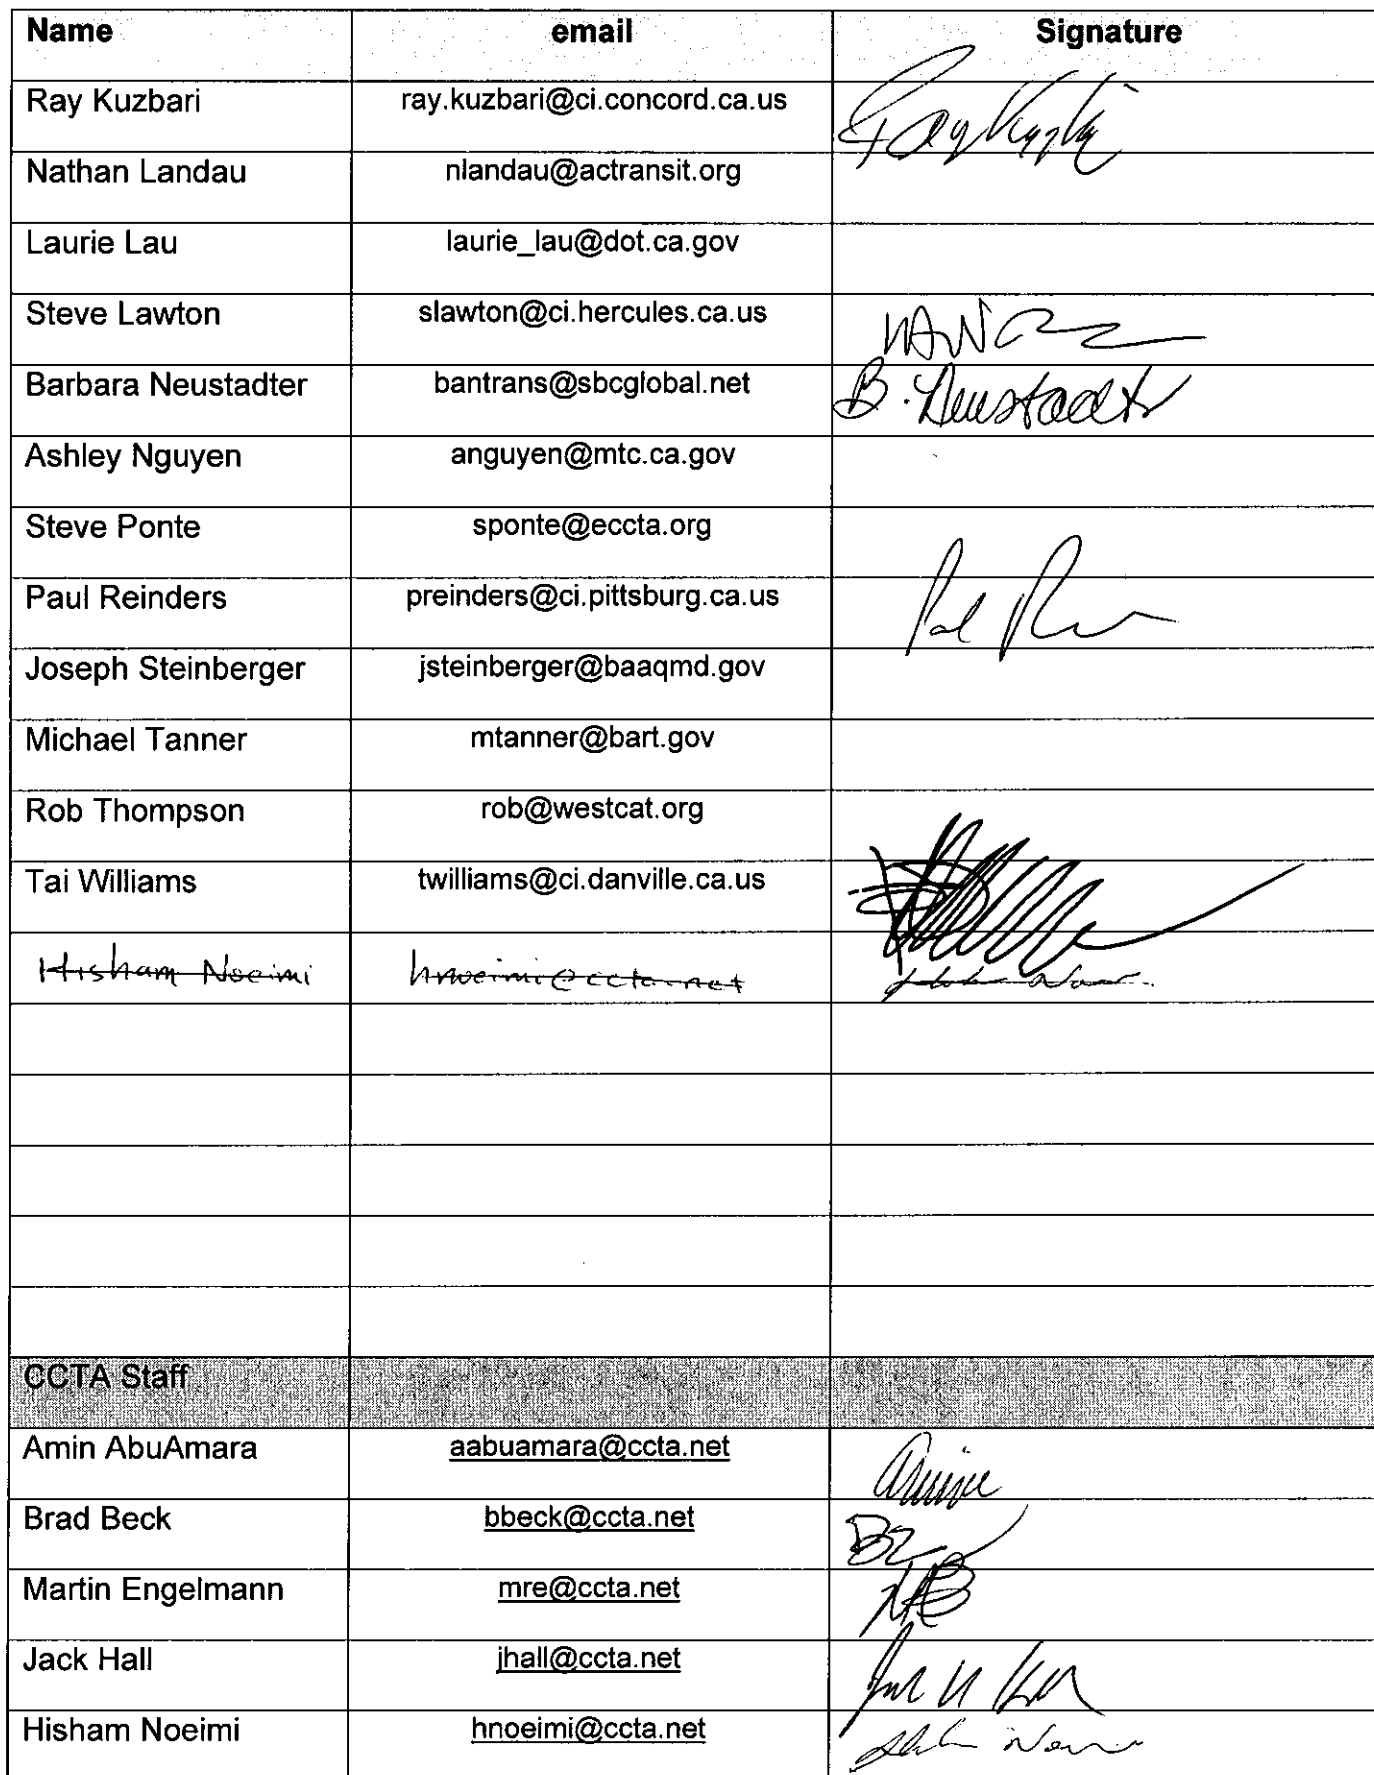 Name email Signature
Ray Kuzbari ray.kuzbari@ci.concord.ca.us Ray Kuzbari
Nathan Landau nlandau@actransit.org
Laurie Lau laurie_lau@dot.ca.gov
Steve Lawton slawton@ci.hercules.ca.us
Barbara Neustadter bantrans@sbcglobal.net B. Neustadter
Ashley Nguyen anguyen@mtc.ca.gov
Steve Ponte sponte@eccta.org
Paul Reinders preinders@ci.pittsburg.ca.us
Joseph Steinberger jsteinberger@baaqmd.gov
Michael Tanner mtanner@bart.gov
Rob Thompson rob@westcat.org
Tai Williams twilliams@ci.danville.ca.us
Hisham Noeimi hnoeimi@ccta.net
CCTA Staff
Amin AbuAmara aabuamara@ccta.net
Brad Beck bbeck@ccta.net
Martin Engelmann mre@ccta.net
Jack Hall jhall@ccta.net
Hisham Noeimi hnoeimi@ccta.net